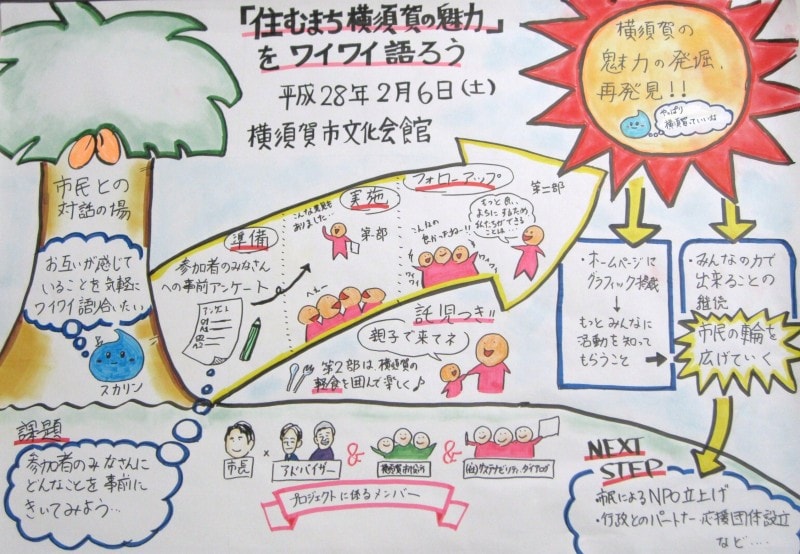 「住むまち横須賀の魅力」
を ワイワイ語ろう
平成28年2月6日(土)
横須賀市文化会館
横須賀の
魅力の発掘、
再発見!!
やっぱり
横須賀っていいね
市民との
対話の場
お互いが感じて
いることを気軽に
ワイワイ語り合いたい
スカリン
準備
参加者のみなさん
への事前アンケート
アンケート
実施
こんな意見も
ありました…
第一部
へぇ〜
フォローアップ
第二部
ワイ
ワイ
ワイ
ワイ
もっと良い
まちにするため
私たちができる
ことは…
託児つき!!
親子で来てネ
第2部は、横須賀の
軽食を囲んで楽しく♪
・ホームページに
グラフィック掲載
↓
もっとみんなに
活動を知って
もらうこと
・みんなの力で
出来ることの
継続
市民の輪を
広げていく
課題
参加者のみなさんに
どんなことを事前に
きいてみよう…
市長
×
アドバイザー
&
&
(社)サステナビリティ・ダイアログ
プロジェクトに係るメンバー
NEXT
STEP
・市民によるNPO立上げ
・行政とのパートナー応援団体設立
など……